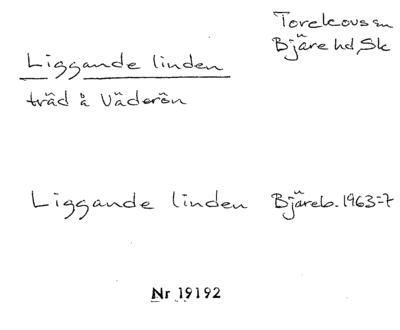 Torekovs sn
Bjäre hd, Sk
Liggande linden
träd å Väderön
Liggande linden Bjäreb. 1963=7
Nr 19192